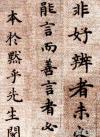 非好辨者未
能言而善言者必
本於默乎先生閒